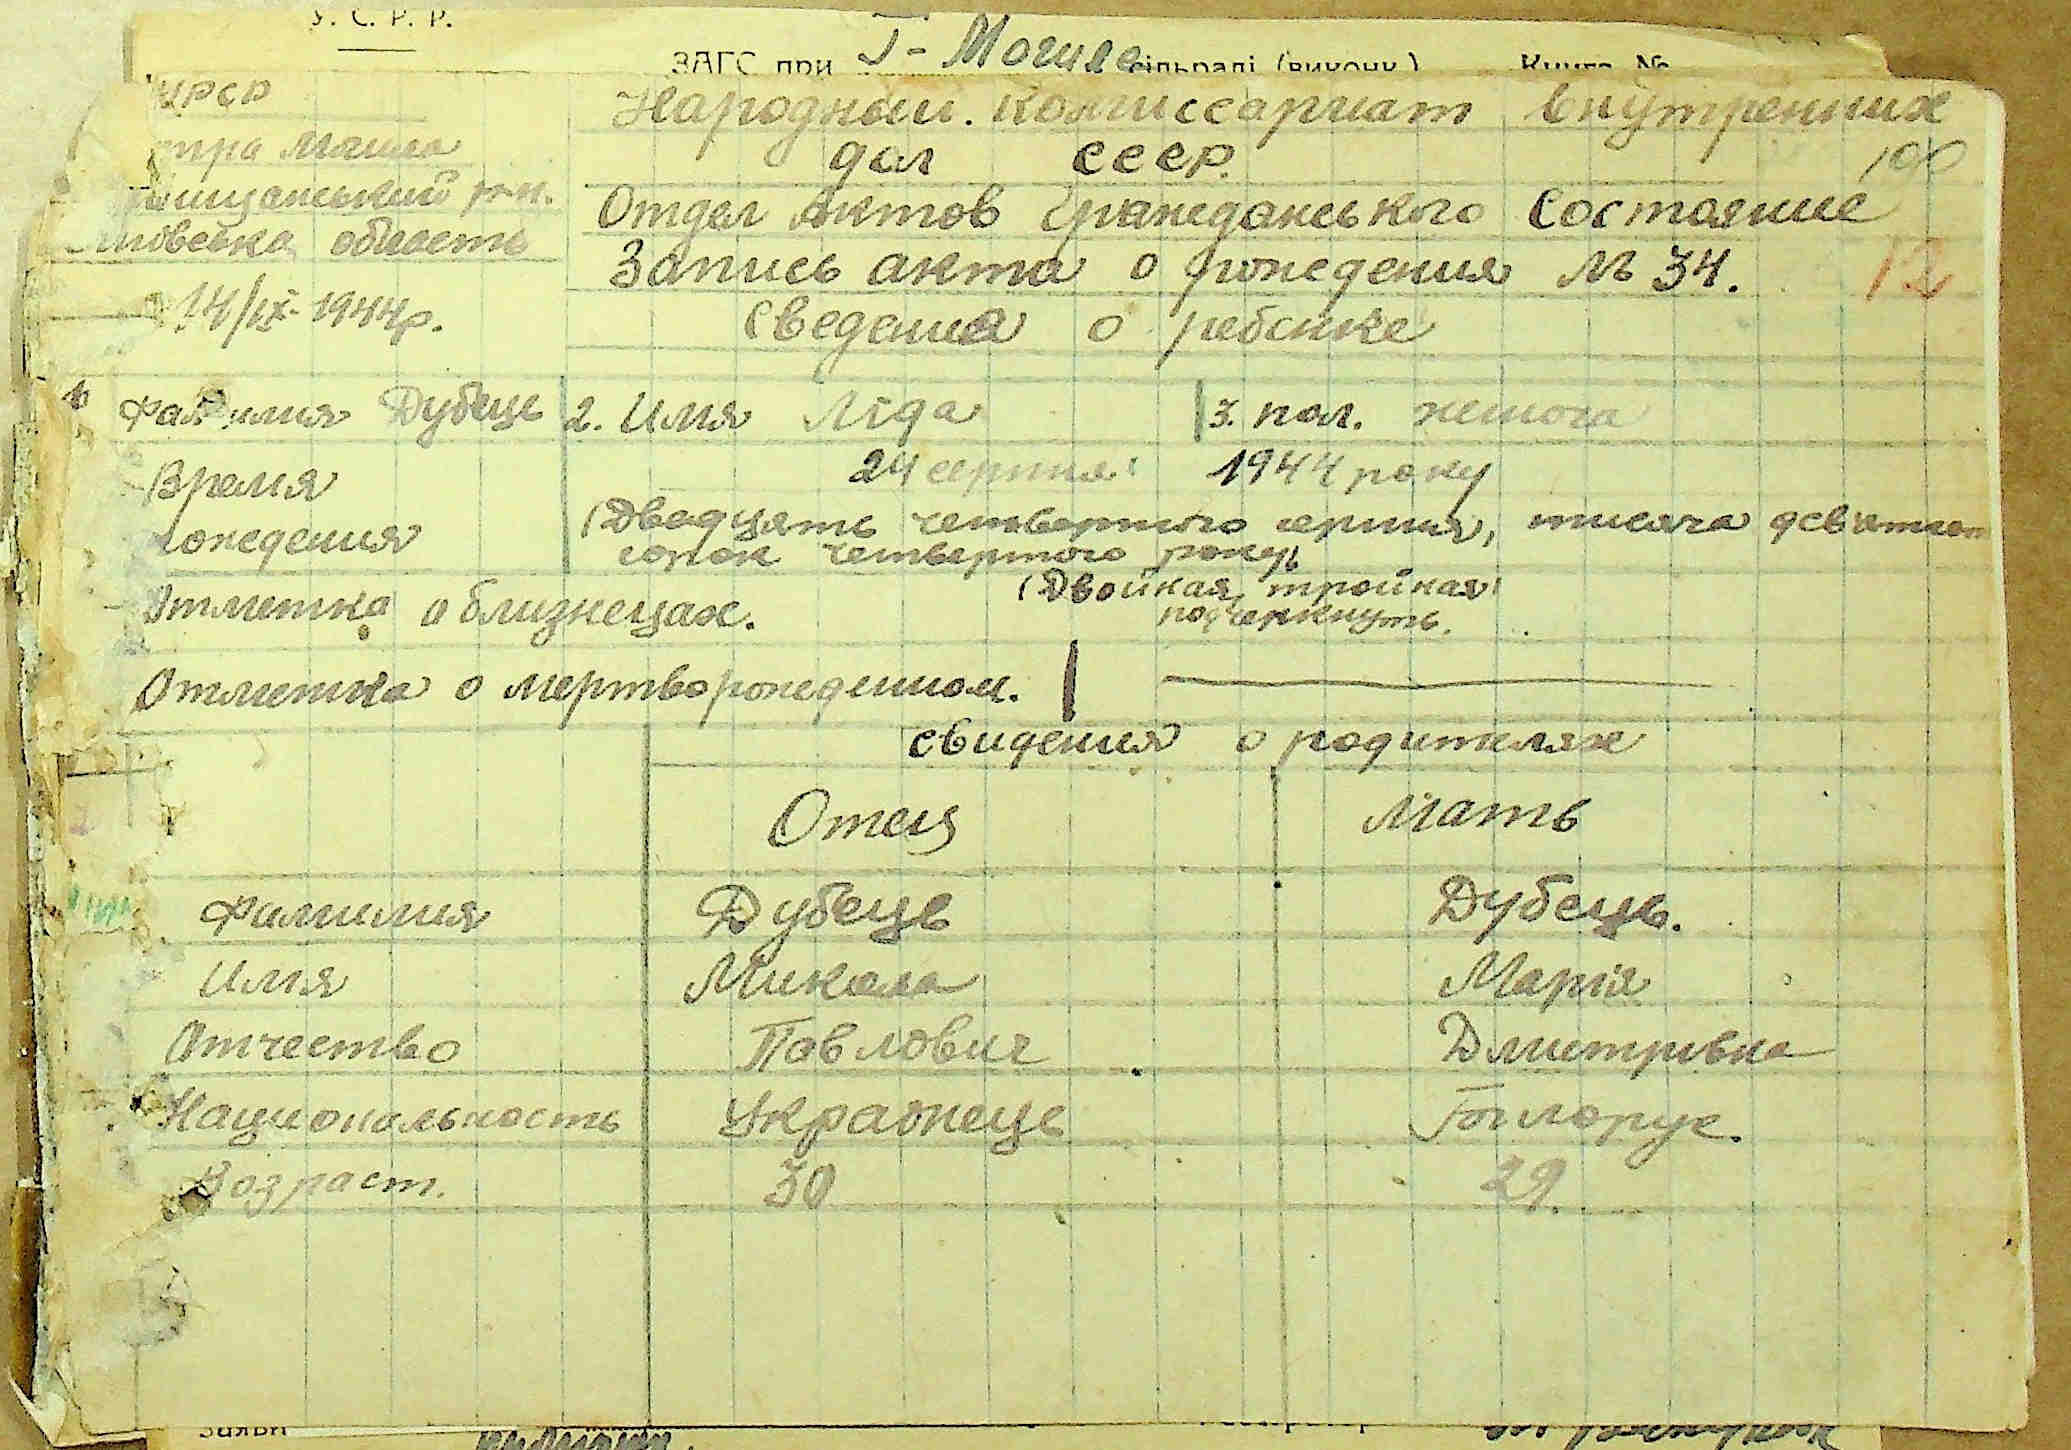 У. С. Р. Р.
ЗАГС при Г-Могиле сільраді (виконк.) Книга №
УРСР
Народный. комиссариат внутренних
дел СССР.
100
Отдел актов Гражеданського состояние
область
Запись акта о рожедения № 34.
12
14/ІХ-1944р.
Сведения о ребенке
Фамилия Дубець 2. Имя Ліда 3. пол. жешога
Время 24 серпня 1944 року
рожедения (Двадцять четвертого серпня, тисяча девятсот
сорок четвертого року)
Отметка о близнецах. (Двойная, тройная
подчеркнуть.
Отметка о мертворожедением.
свидения о родителях
Отец Мать
Фамилия Дубець Дубець.
Имя Микола Марія
Отчество Павлович Дмитрівна
Национальность Українець Білорус.
Возраст. 30 29.
Заяви